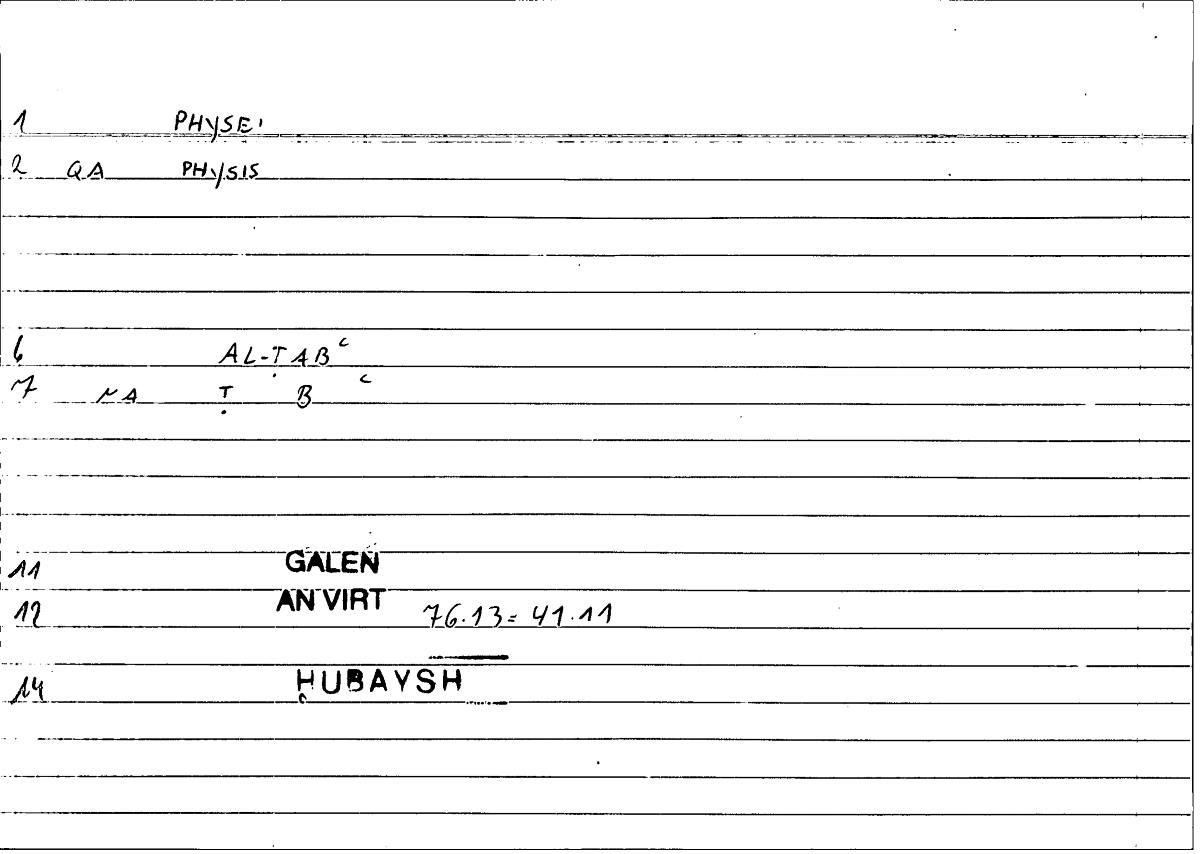 1 PHYSEI
2 QA PHYSIS
6 AL-ṬABᶜ
7 NA Ṭ B ᶜ
11 GALEN
12 AN VIRT 76.13 = 41.11
14 ḤUBAYSH